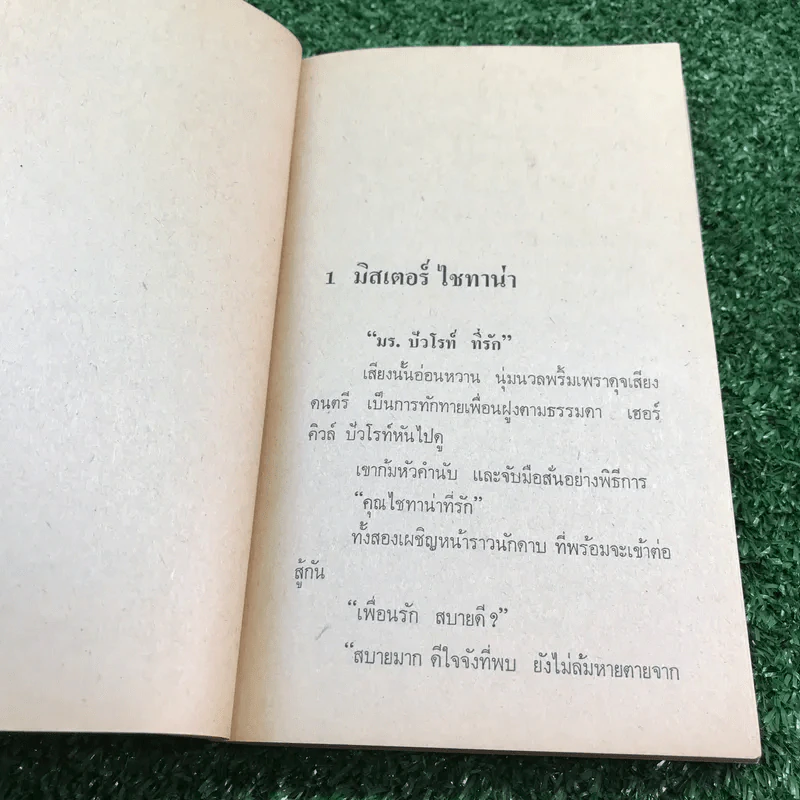 1 มิสเตอร์ ไชทาน่า
“มร. ปัวโรท์ ที่รัก”
เสียงนั้นอ่อนหวาน นุ่มนวลพริ้มเพราดุจเสียง
ดนตรี เป็นการทักทายเพื่อนฝูงตามธรรมดา เฮอร์
คิวล์ ปัวโรท์หันไปดู
เขาก้มหัวคำนับ และจับมือสั่นอย่างพิธีการ
“คุณไชทาน่าที่รัก”
ทั้งสองเผชิญหน้าราวนักดาบ ที่พร้อมจะเข้าต่อ
สู้กัน
“เพื่อนรัก สบายดี ?”
“สบายมาก ดีใจจังที่พบ ยังไม่ล้มหายตายจาก